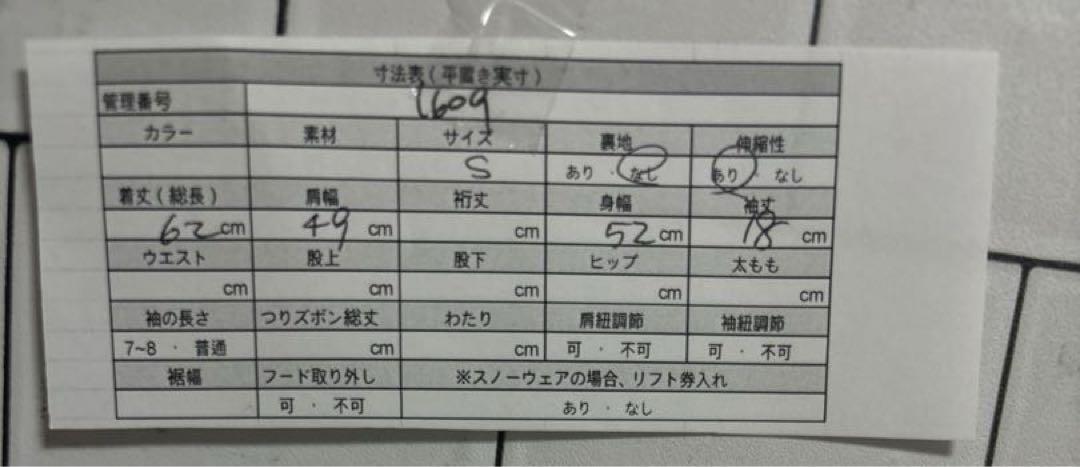 寸法表(平置き実寸)
管理番号 1609
カラー 素材 サイズ 裏地 伸縮性
S あり ・ なし あり ・ なし
着丈(総長) 肩幅 裄丈 身幅 袖丈
62 cm 49 cm cm 52 cm 18 cm
ウエスト 股上 股下 ヒップ 太もも
cm cm cm cm cm
袖の長さ つりズボン総丈 わたり 肩紐調節 袖紐調節
7~8 ・ 普通 cm cm 可 ・ 不可 可 ・ 不可
裾幅 フード取り外し ※スノーウェアの場合、リフト券入れ
可 ・ 不可 あり ・ なし